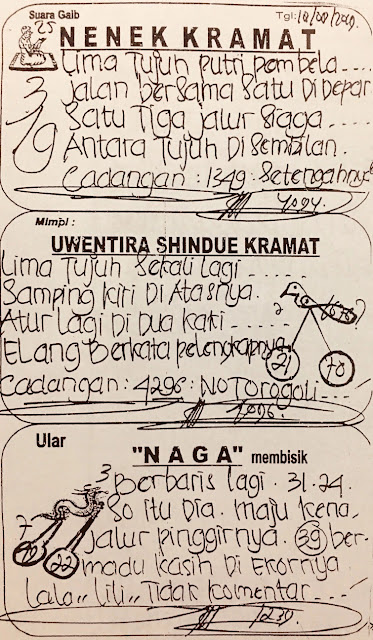 Suara Gaib
Tgl: 10/09/2019.
25
NENEK KRAMAT
3
19
Lima Tujuh putri pembela....
Jalan bersama Satu Di Depan
Satu Tiga jalur siaga....
Antara Tujuh Di Sembilan.
Cadangan : 1349. Setengahnya
4094.
Mimpi :
UWENTIRA SHINDUE KRAMAT
Lima Tujuh Sekali Lagi......
Samping kiri Di Atasnya.
Atur lagi Di Dua kaki.....
Elang Berkata pelengkapnya.
21
70
Cadangan : 4296 : NOTOrogoli...
1096.
Ular
"NAGA" membisik
3
Berbaris lagi. 31.24.
So itu Dia. maju kena,
7
22
jalur pinggirnya. 39 ber-
madu kasih Di Ekornya
Lala,, lili,, Tidak komentar...
1239.